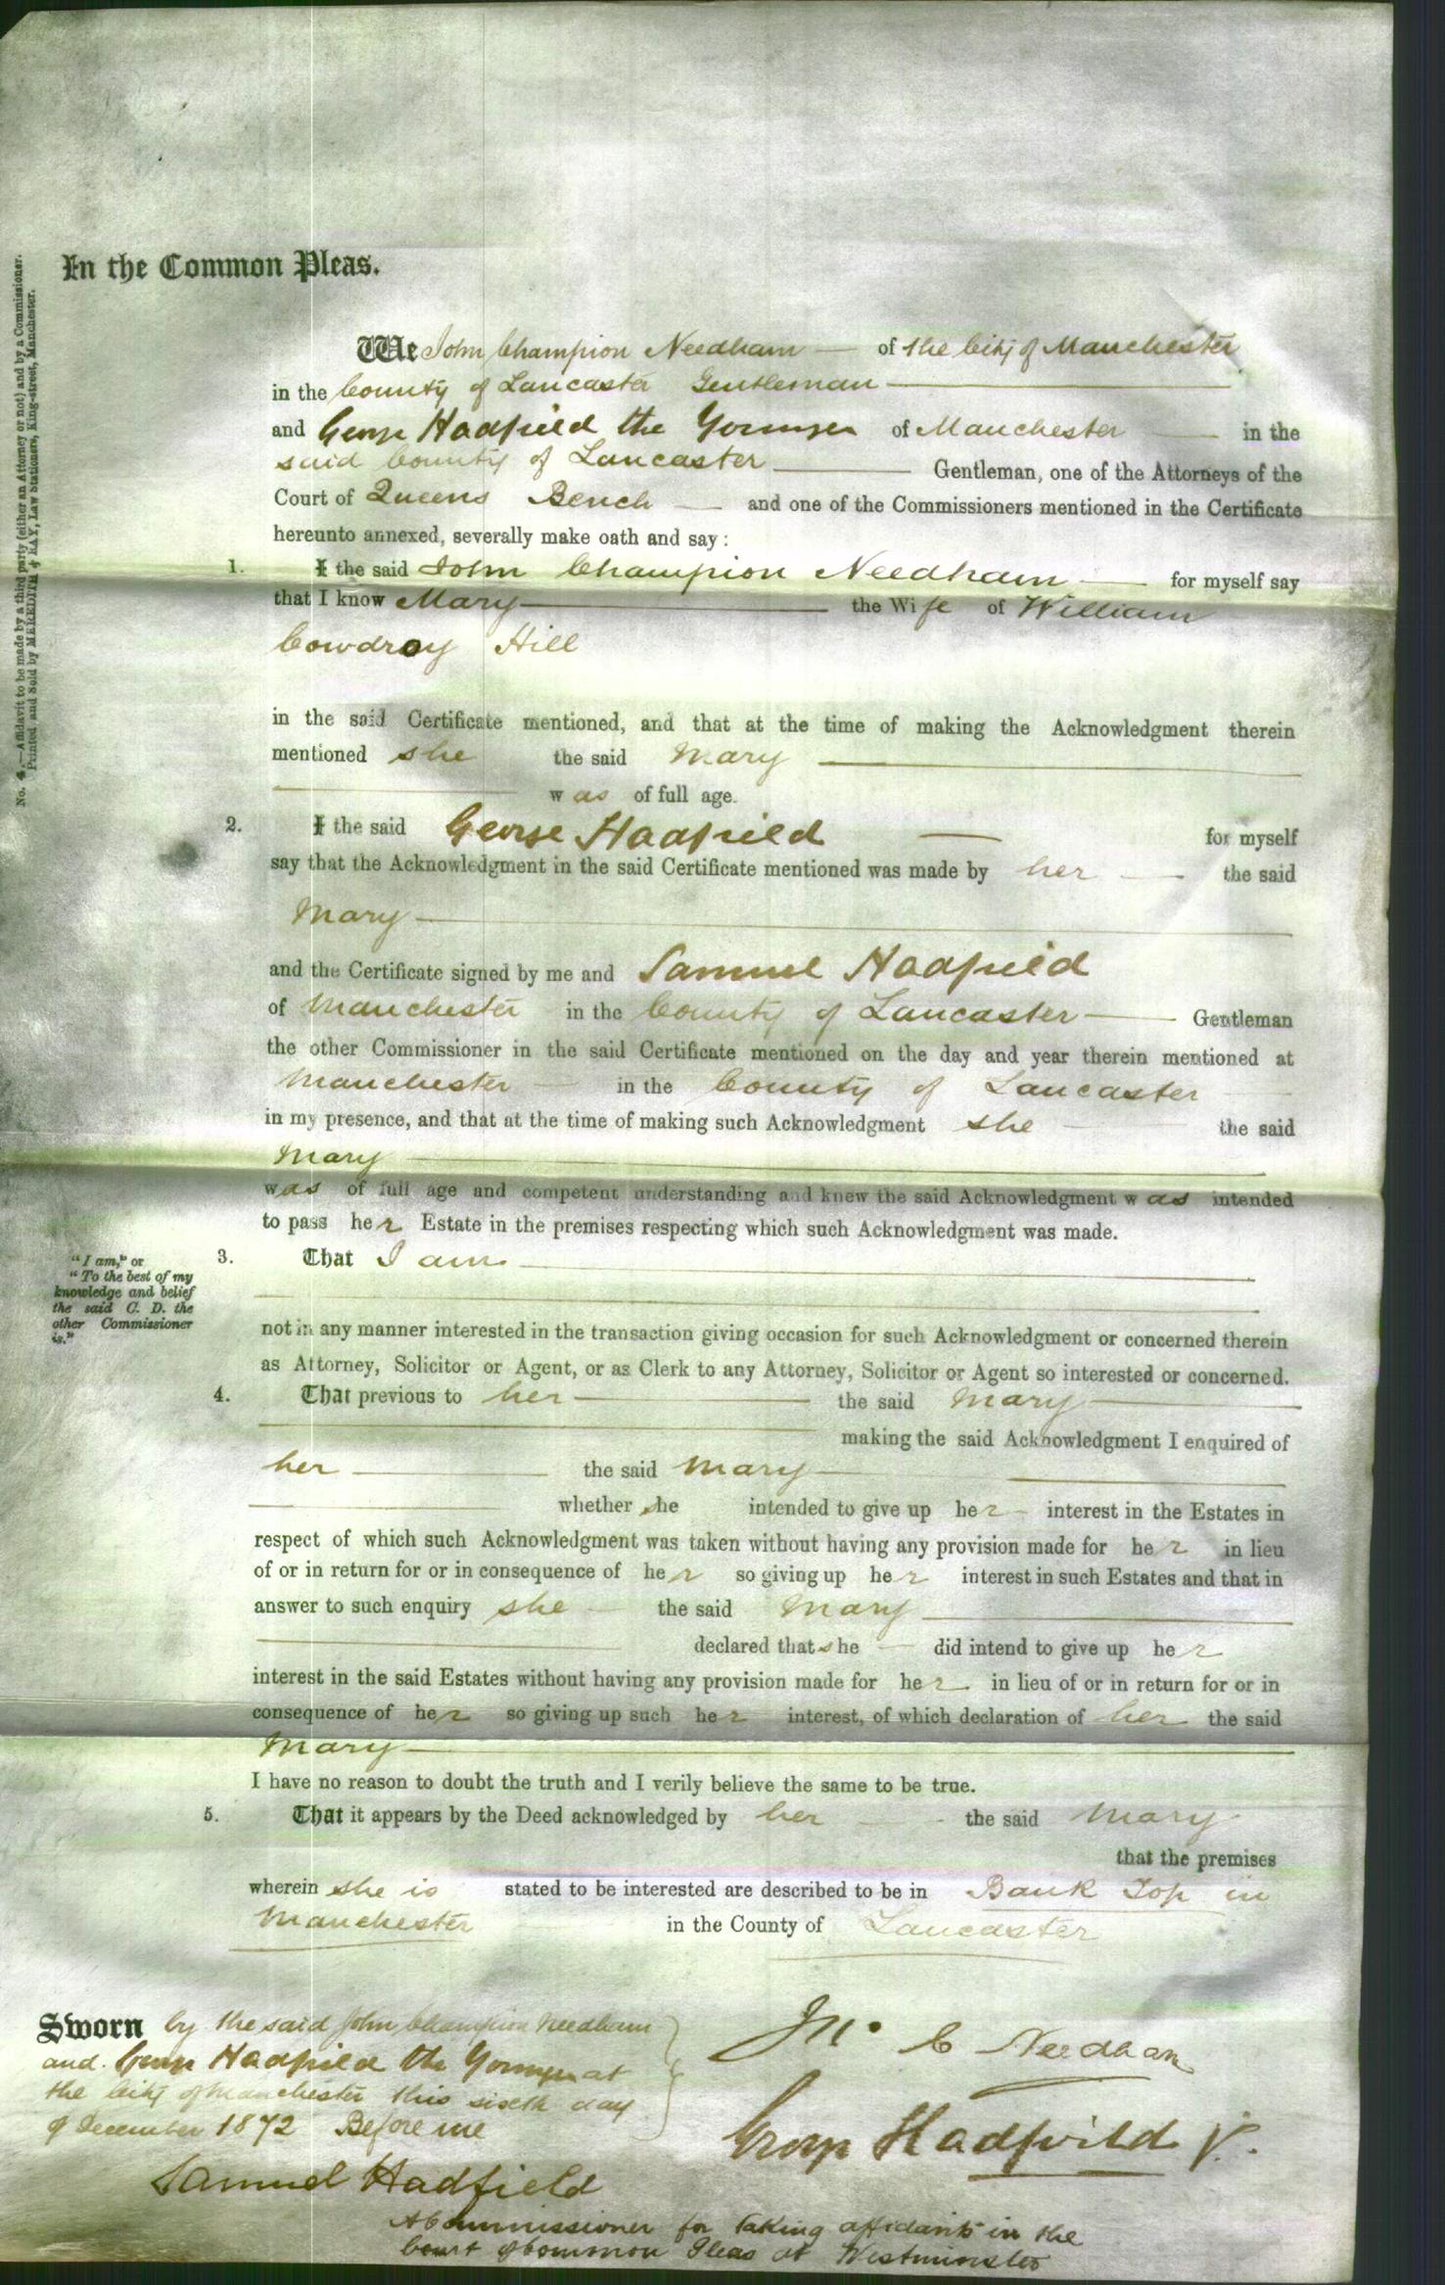 No. 4.—Affidavit to be made by a third party (either an Attorney or not) and by a Commissioner.
Printed and Sold by MEREDITH & RAY, Law Stationers, King-street, Manchester.
In the Common Pleas.
We John Champion Needham of the City of Manchester
in the County of Lancaster Gentleman
and George Hadfield the Younger of Manchester in the
said County of Lancaster Gentleman, one of the Attorneys of the
Court of Queens Bench and one of the Commissioners mentioned in the Certificate
hereunto annexed, severally make oath and say :
1. I the said John Champion Needham for myself say
that I know Mary the Wife of William
Cowdroy Hill
in the said Certificate mentioned, and that at the time of making the Acknowledgment therein
mentioned she the said Mary
was of full age.
2. I the said George Hadfield for myself
say that the Acknowledgment in the said Certificate mentioned was made by her the said
Mary
and the Certificate signed by me and Samuel Hadfield
of Manchester in the County of Lancaster Gentleman
the other Commissioner in the said Certificate mentioned on the day and year therein mentioned at
Manchester in the County of Lancaster
in my presence, and that at the time of making such Acknowledgment she the said
Mary
was of full age and competent understanding and knew the said Acknowledgment was intended
to pass her Estate in the premises respecting which such Acknowledgment was made.
"I am," or
"To the best of my
knowledge and belief
the said C. D. the
other Commissioner
is."
3. That I am
not in any manner interested in the transaction giving occasion for such Acknowledgment or concerned therein
as Attorney, Solicitor or Agent, or as Clerk to any Attorney, Solicitor or Agent so interested or concerned.
4. That previous to her the said Mary
making the said Acknowledgment I enquired of
her the said Mary
whether she intended to give up her interest in the Estates in
respect of which such Acknowledgment was taken without having any provision made for her in lieu
of or in return for or in consequence of her so giving up her interest in such Estates and that in
answer to such enquiry she the said Mary
declared that she did intend to give up her
interest in the said Estates without having any provision made for her in lieu of or in return for or in
consequence of her so giving up such her interest, of which declaration of her the said
Mary
I have no reason to doubt the truth and I verily believe the same to be true.
5. That it appears by the Deed acknowledged by her the said Mary
that the premises
wherein she is stated to be interested are described to be in Bank Top in
Manchester in the County of Lancaster
Sworn by the said John Champion Needham
and George Hadfield the Younger at
the City of Manchester this sixth day
of December 1872 Before me
Jno. C Needham
George Hadfield Jr.
Samuel Hadfield
A Commissioner for taking affidavits in the
Court of Common Pleas at Westminster